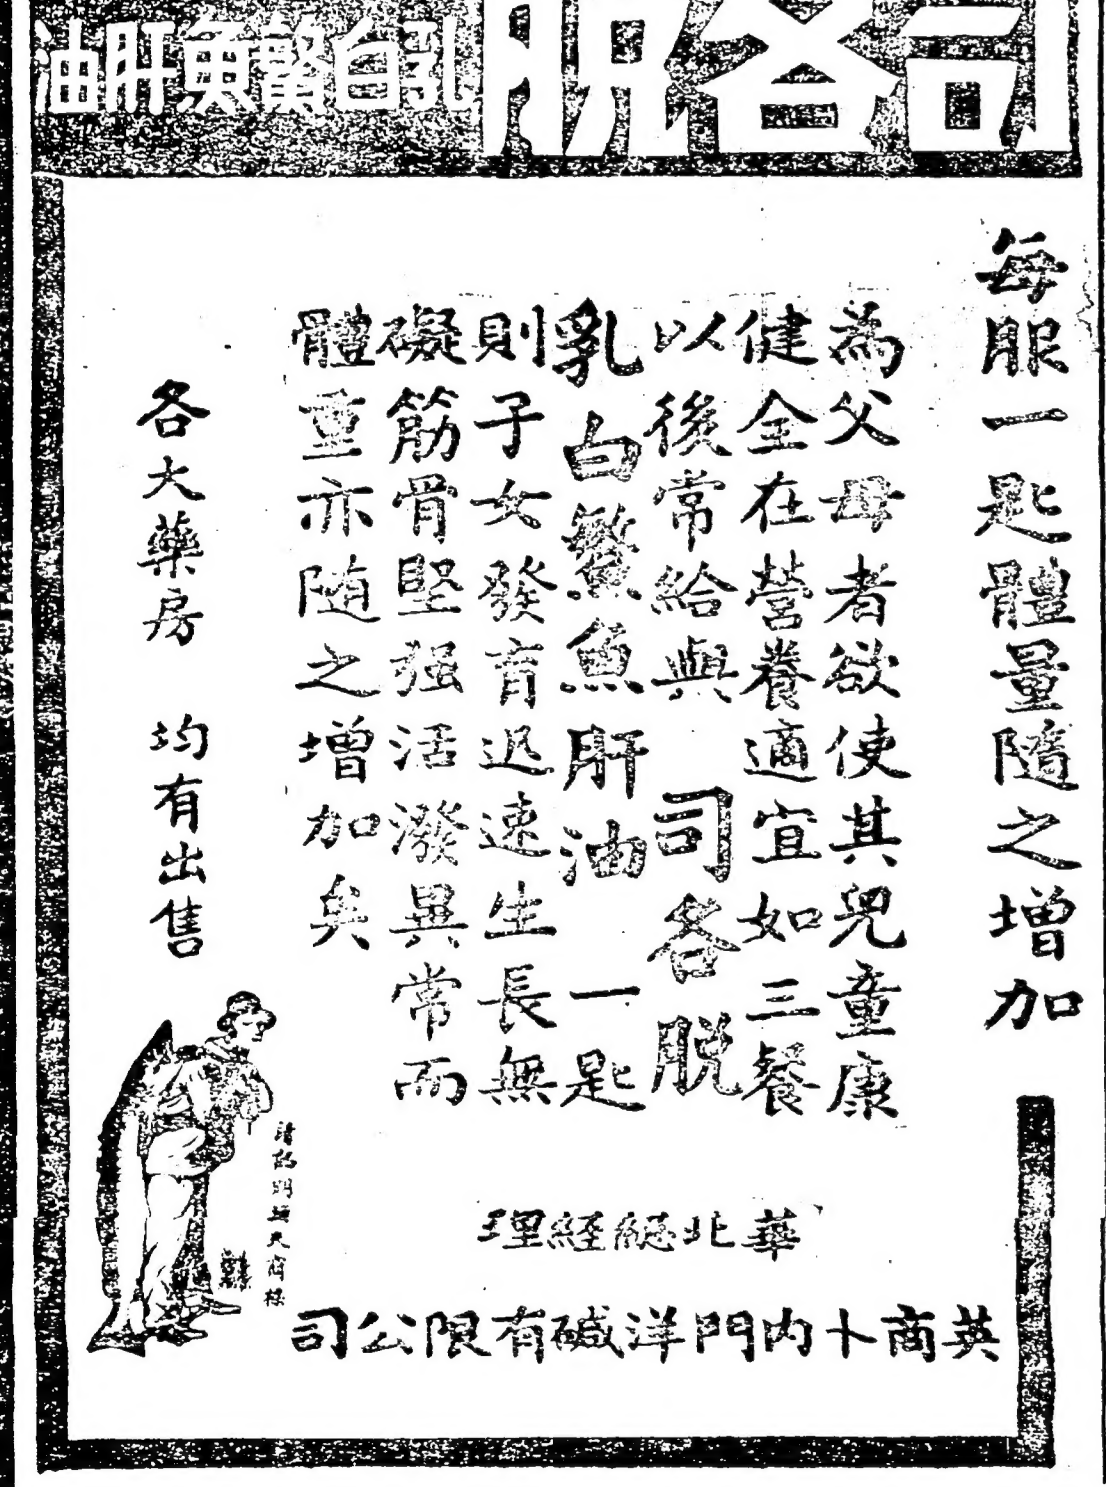 司各脫
乳白鰵魚肝油
每服一匙體量隨之增加
為父母者欲使其兒童康
健全在營養適宜如三餐
以後常給與司各脫
乳白鰵魚肝油一匙
則子女發育迅速生長無
礙筋骨堅强活潑異常而
體重亦随之增加矣
各大藥房 均有出售
請認明負大魚商標
華北總經理
英商卜内門洋碱有限公司